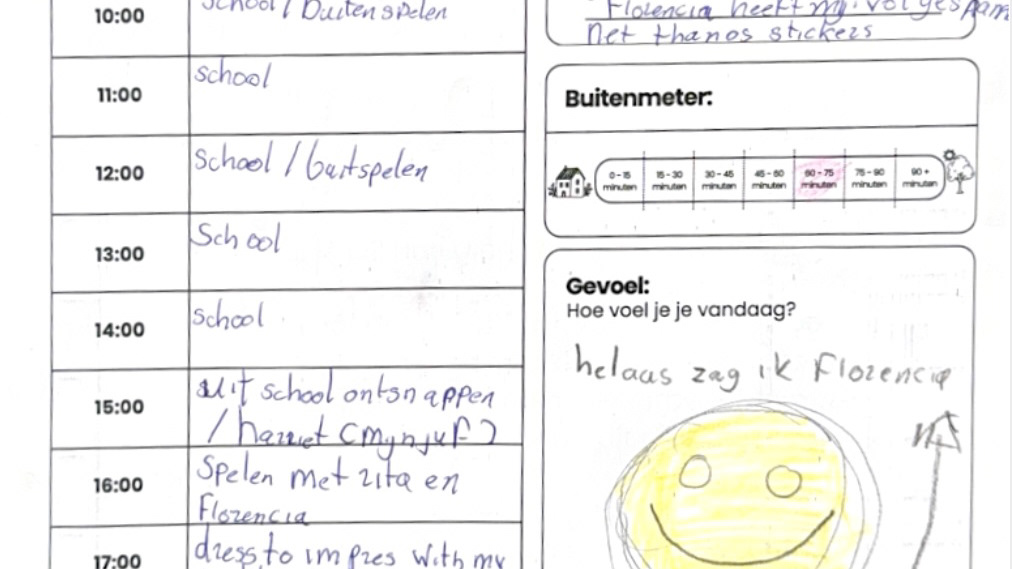 10:00
school / buitenspelen
11:00
school
12:00
school / buitspelen
13:00
School
14:00
school
15:00
uit school ontsnappen
/ harriet (mijn juf)
16:00
Spelen met zita en
Florencia
17:00
dress to impres with my
Florencia heeft mij vol gespam
met thanos stickers
Buitenmeter:
0 - 15 minuten
15 - 30 minuten
30 - 45 minuten
45 - 60 minuten
60 - 75 minuten
75 - 90 minuten
90 + minuten
Gevoel:
Hoe voel je je vandaag?
helaas zag ik Florencia